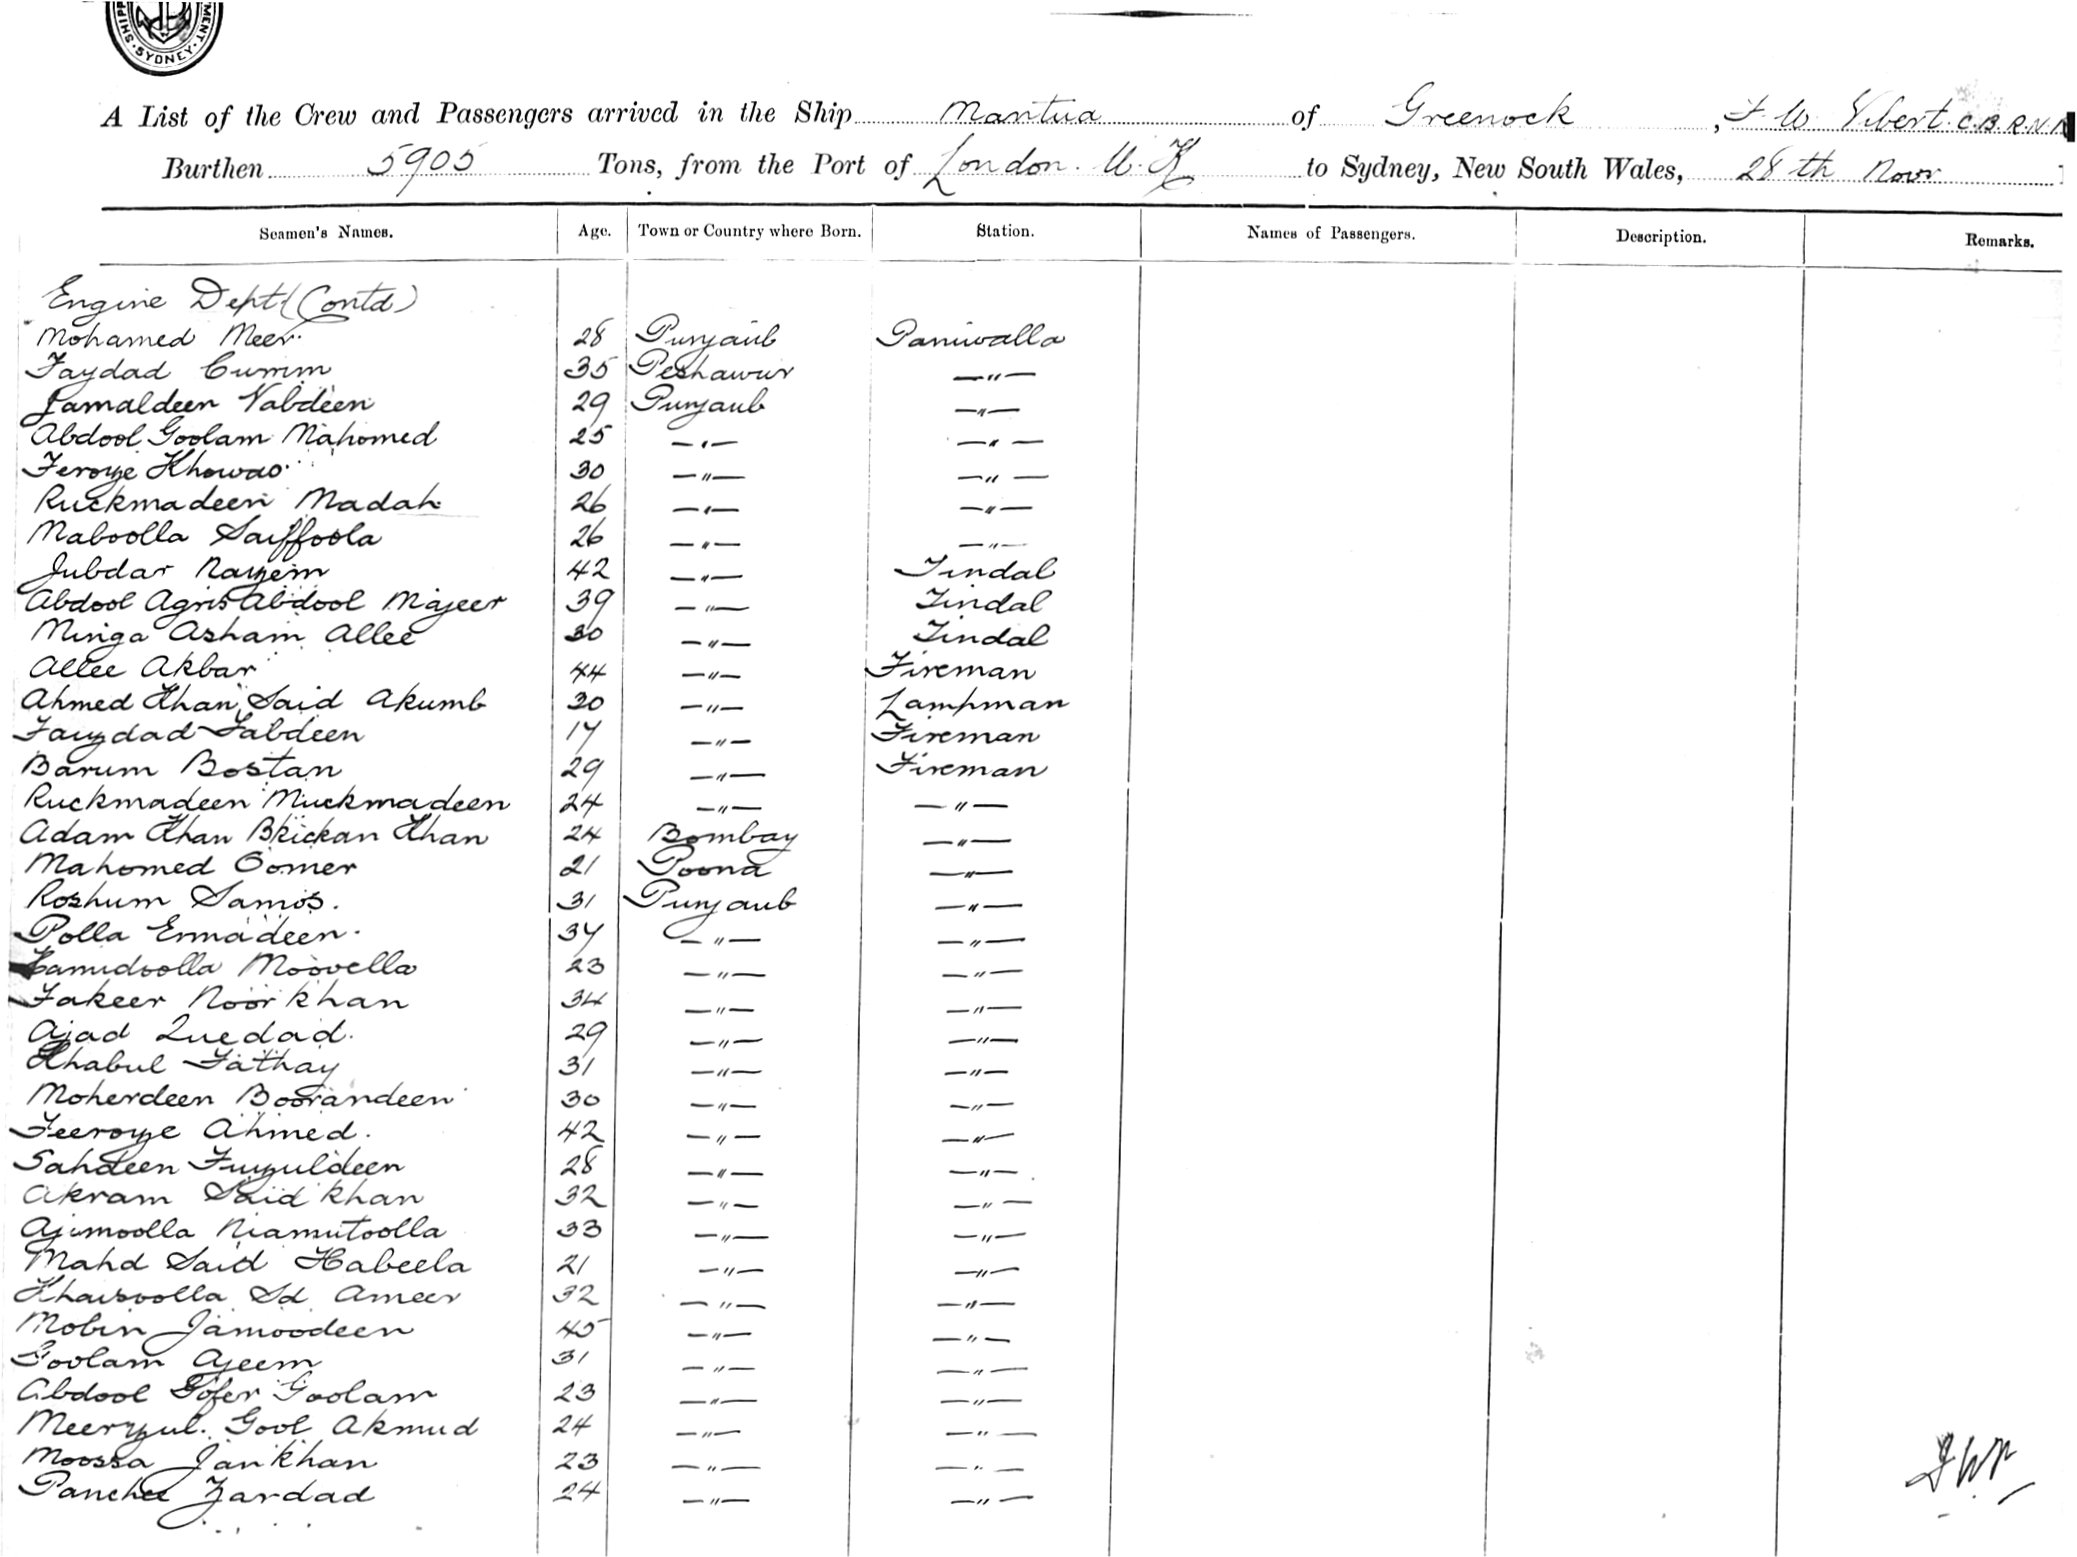 SHIPP MENT · SYDNEY ·
A List of the Crew and Passengers arrived in the Ship Mantua of Greenock , F. W. Vibert. C.B. R.N.R
Burthen 5905 Tons, from the Port of London. U.K to Sydney, New South Wales, 28th Novr
Seamen's Names. Age. Town or Country where Born. Station. Names of Passengers. Description. Remarks.
Engine Dept (Contd)
Mohamed Meer. 28 Punjaub Paniwalla
Faydad Cumm 35 Peshawur —"—
Jamaldeen Nabdeen 29 Punjaub —"—
Abdool Goolam Mahomed 25 —"— —"—
Feroze Khowas 30 —"— —"—
Ruckmadeen Madah 26 —"— —"—
Maboolla Saiffoola 26 —"— —"—
Jubdar Nayem 42 —"— Tindal
Abdool Agris Abdool Majeer 39 —"— Tindal
Minga Asham Allee 30 —"— Tindal
Allee Akbar 44 —"— Fireman
Ahmed Khan Said Akumb 30 —"— Lampman
Fauzdad Fabdeen 17 —"— Fireman
Barum Bostan 29 —"— Fireman
Ruckmadeen Muckmadeen 24 —"— —"—
Adam Khan Brickan Khan 24 Bombay —"—
Mahomed Oomer 21 Poona —"—
Roshum Samos. 31 Punjaub —"—
Polla Emmadeen. 37 —"— —"—
Hamidoolla Moovella 23 —"— —"—
Fakeer Noor Khan 34 —"— —"—
Ajad Luedad. 29 —"— —"—
Khabul Fathay 31 —"— —"—
Moherdeen Boorandeen 30 —"— —"—
Feeroze Ahmed. 42 —"— —"—
Sahdeen Fuzuldeen 28 —"— —"—
Akram Said Khan 32 —"— —"—
Ajimoolla Niamutoolla 33 —"— —"—
Mahd Said Habeela 21 —"— —"—
Khaisoolla Sd Ameer 32 —"— —"—
Mobin Jamoodeen 45 —"— —"—
Goolam Ajeem 31 —"— —"—
Abdool Gofer Goolam 23 —"— —"—
Meerzul. Gool Akmud 24 —"— —"—
Moossa Jan Khan 23 —"— —"—
Panchee Zardad 24 —"— —"—